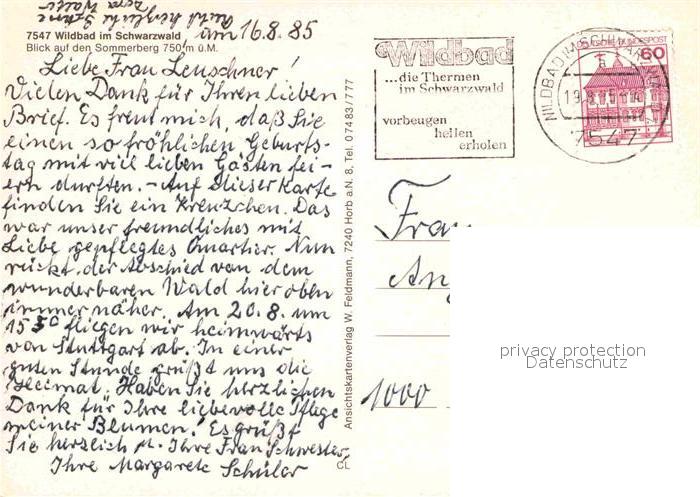 7547 Wildbad im Schwarzwald
Blick auf den Sommerberg 750 m ü.M.
am 16.8.85
Liebe Frau Leuschner!
Vielen Dank für Ihren lieben
Brief. Es freut mich, daß Sie
einen so fröhlichen Geburts-
tag mit viel lieben Gästen fei-
ern durften. - Auf dieser Karte
finden Sie ein Kreuzchen. Das
war unser freundliches mit
Liebe gepflegtes Quartier. Nun
rückt der Abschied von dem
wunderbaren Wald hier oben
immer näher. Am 20.8. um
15 30 fliegen wir heimwärts
von Stuttgart ab. In einer
guten Stunde grüßt uns die
Heimat. Haben Sie herzlichen
Dank für Ihre liebevolle Pflege
meiner Blumen! Es grüßt
Sie herzlich Ihre Frau Schwester,
Ihre Margarete Schüler
Ansichtskartenverlag W. Feldmann, 7240 Horb a.N. 8, Tel. 07483/777
CL
Wildbad
...die Thermen
im Schwarzwald
vorbeugen
heilen
erholen
7547
DEUTSCHE BUNDESPOST
60
Frau
1000
privacy protection
Datenschutz